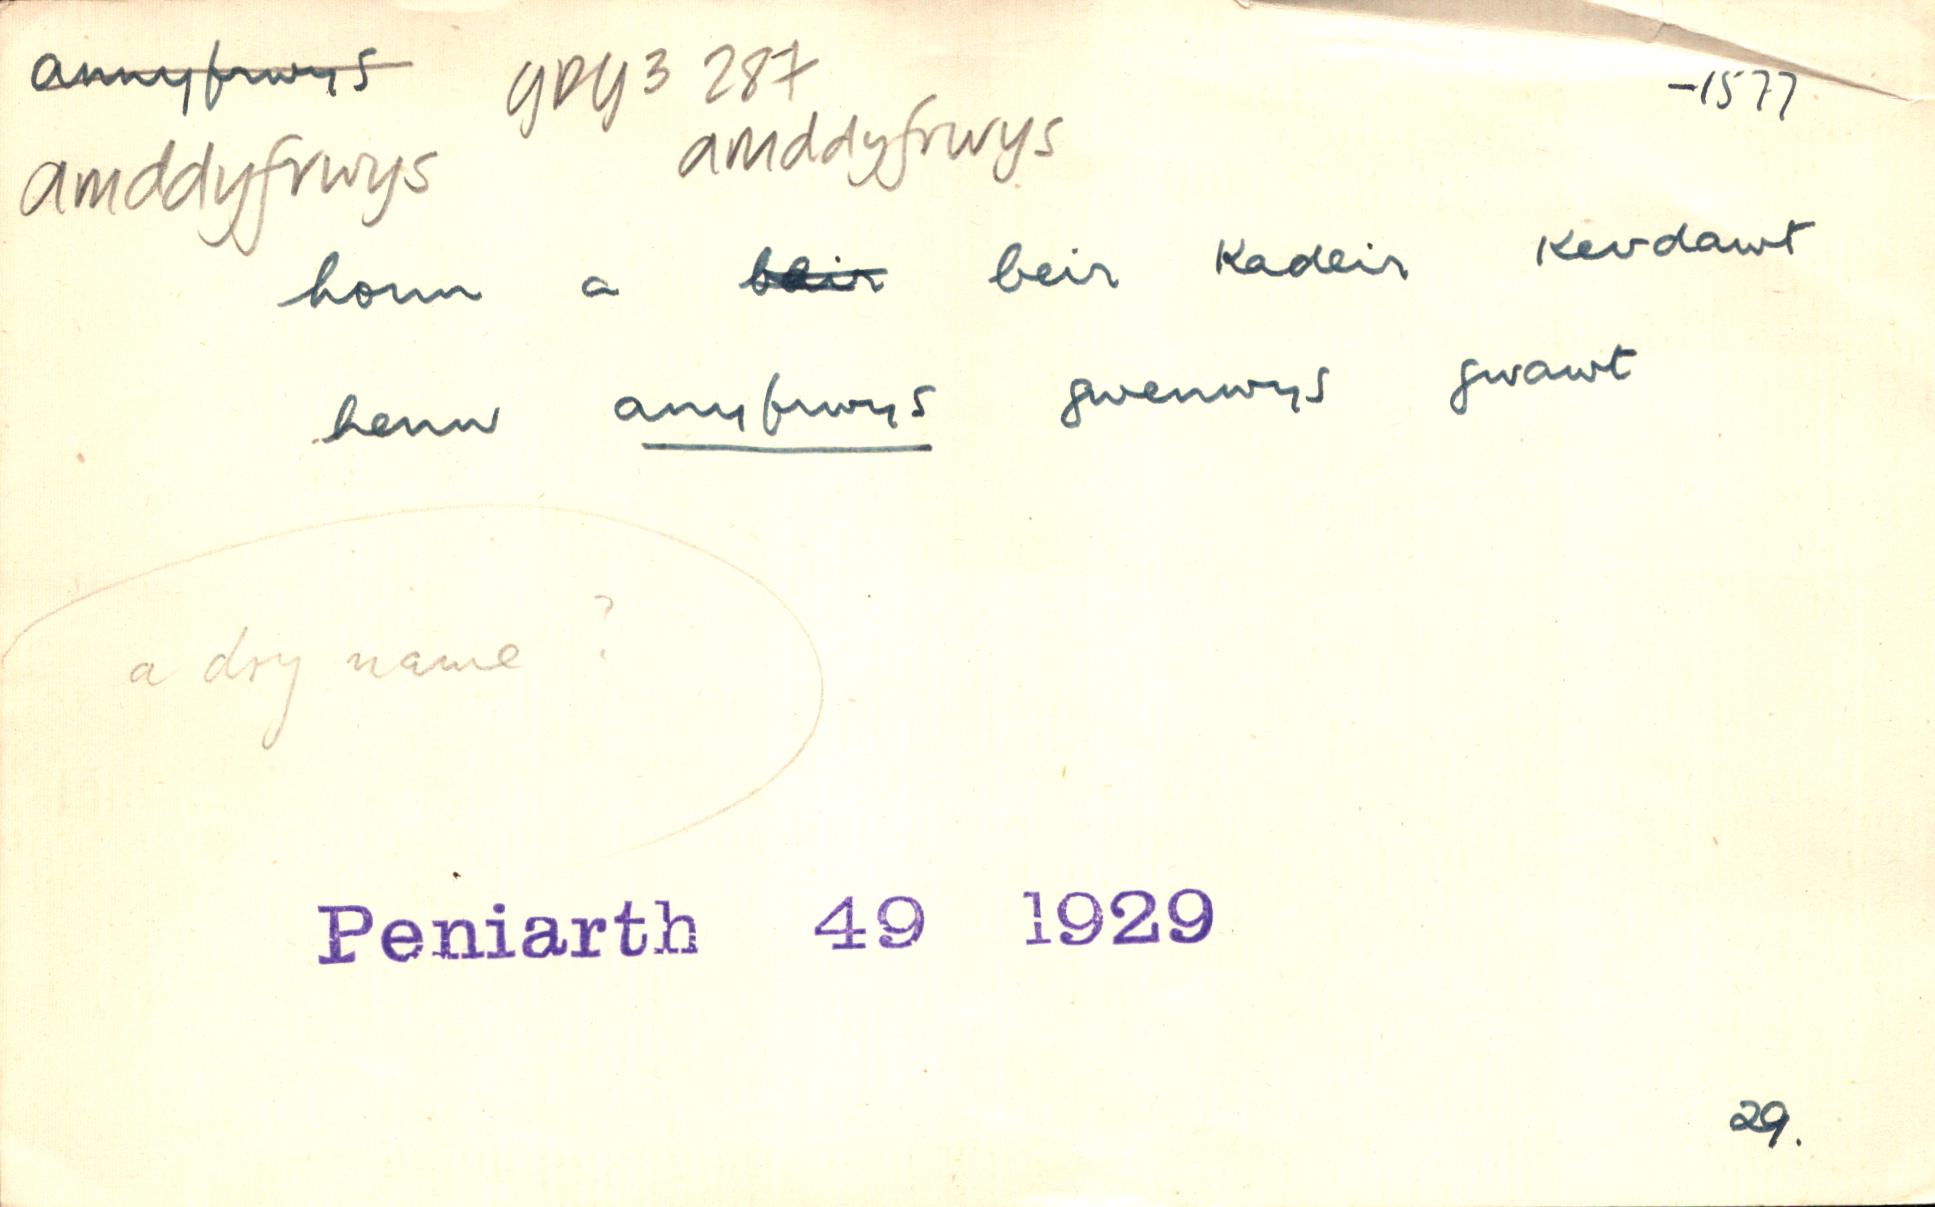 annyfrwys GDG3 287 -1577
amddyfrwys amddyfrwys
honn a beir beir Kadeir Kevdawt
henw anyfrwys gwenwys gwawt
a dry name ?
Peniarth 49 1929
29.